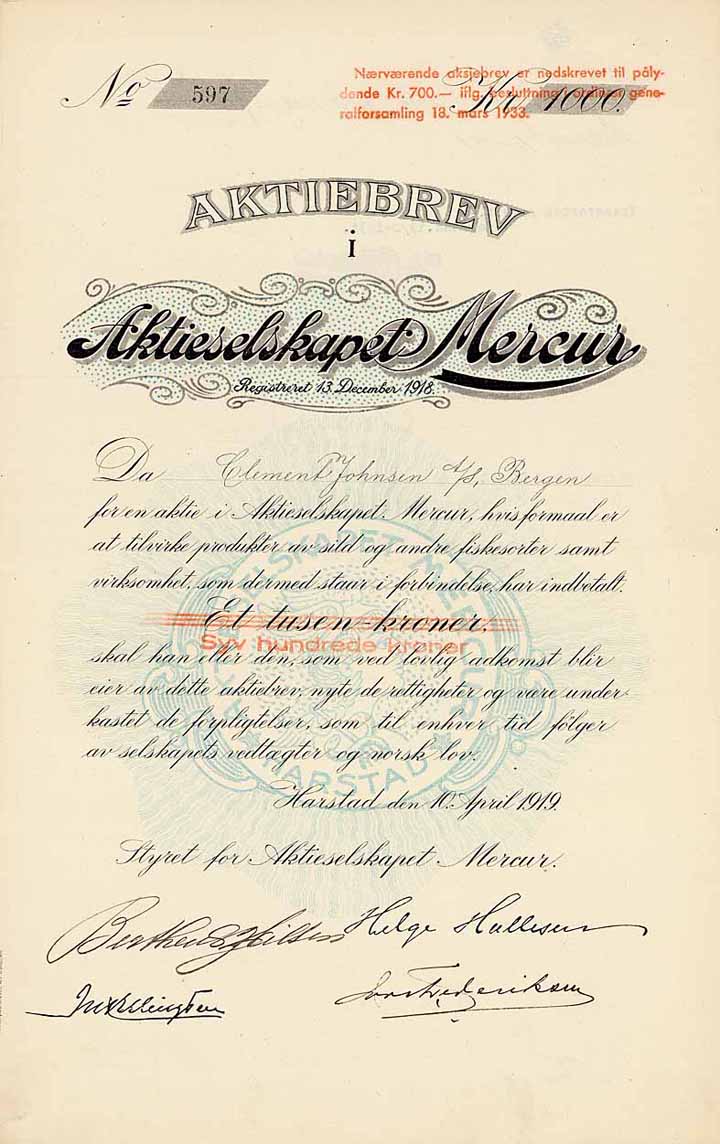 No 597
Nærværende aksjebrev er nedskrevet til påly-
dende Kr. 700.— iflg. beslutning i ordinær gene-
ralforsamling 18. mars 1933.
Kr. 1000.
AKTIEBREV
i
Aktieselskapet Mercur
Registreret 13. December 1918.
Da Clement Johnsen A/S, Bergen
for en aktie i Aktieselskapet Mercur, hvis formaal er
at tilvirke produkter av sild og andre fiskesorter samt
virksomhet, som dermed staar i forbindelse, har indbetalt.
Et tusen kroner,
Syv hundrede kroner
skal han eller den, som ved lovlig adkomst blir
eier av dette aktiebrev, nyte de rettigheter og være under-
kastet de forpligtelser, som til enhver tid følger
av selskapets vedtægter og norsk lov.
AKTIESELSKAPET MERCUR
HARSTAD
Harstad den 10. April 1919.
Styret for Aktieselskapet Mercur.
Helge Hallesen